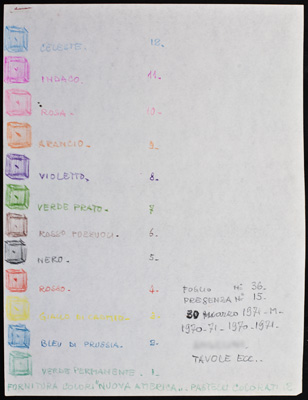 CELESTE. 12.
INDACO. 11.
ROSA. 10.
ARANCIO. 9.
VIOLETTO. 8.
VERDE PRATO. 7
ROSSO 6.
NERO. 5.
ROSSO. 4.
FOGLIO N° 36.
PRESENZA N° 15.
30 1971-M-
1970-71-1970-1971.
3.
BLEU DI PRUSSIA. 2.
TAVOLE ECC..
VERDE PERMANENTE. 1.
FORNITURA COLORI "NUOVA AMERICA". PASTELLI COLORATI